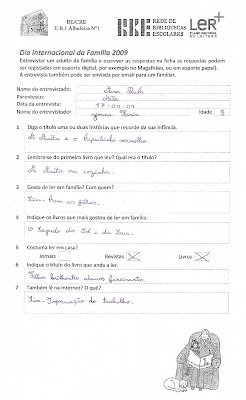 BE/CRE
E.B.1 Albufeira Nº1
REDE DE
BIBLIOTECAS
ESCOLARES
LER+
PLANO NACIONAL
DE LEITURA
Dia Internacional da Família 2009
Entrevistar um adulto da família e escrever as respostas na ficha as respostas podem
ser registadas em suporte digital, por exemplo no Magalhães, ou em suporte papel).
A entrevista também pode ser enviada por email para um familiar.
Nome do entrevistado: Paula
Parentesco: Mãe
Data da entrevista: 17-05-09
Nome do entrevistador: Maria Idade 8
1 Diga o título uma ou duas histórias que recorde da sua infância.
A Anita e o Capuchinho vermelho.
2 Lembra-se do primeiro livro que leu? Qual era o título?
A Anita na cozinha.
3 Gosta de ler em família? Com quem?
Sim. Com os filhos.
4 Indique os livros que mais gostou de ler em família.
O Segredo do Sol e da Lua.
5 Costuma ler em casa?
Jornais Revistas X Livros X
6 Indique o título do livro que anda a ler.
Filhos brilhantes alunos fascinantes.
7 Também lê na internet? O quê?
Sim. Informação do trabalho.